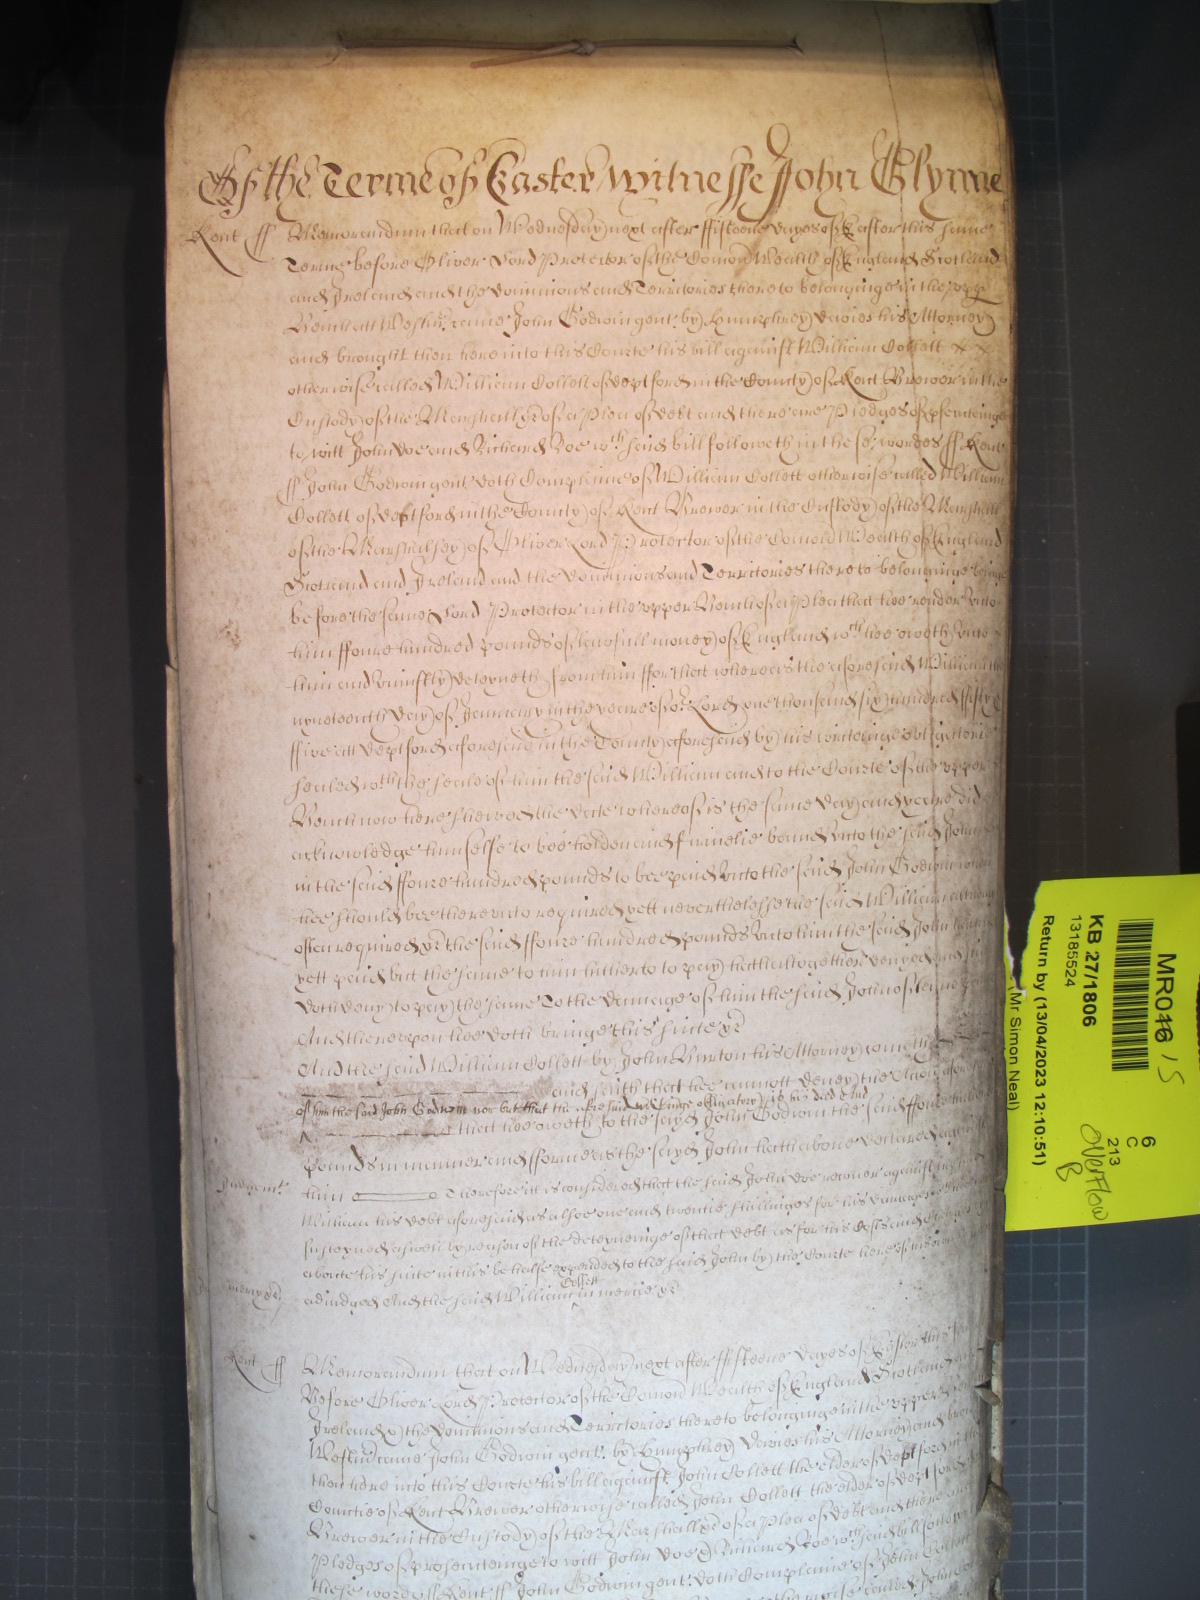 Of the Terme of Easter Witnesse John Glynne
Kent ss Memorandum that on Wednesday next after ffifteene dayes of Easter this same
Terme before Oliver Lord Protector of the Comon Wealth of England Scotland
and Ireland and the Dominions and Territories thereto belonginge in the upp
Bench att Westm came John Godwin gent by Humphrey Davies his Attorney
and brought then here into this Courte his bill against William Collett x x
otherwise called William Collett of Deptford in the County of Kent Brewer in the
Custody of the Marshall &c of a Plea of debt and there are Pledges of psecutinge
to witt John Doe and Richard Roe wch said bill followeth in these wordes ss Kent
ss John Godwin gent doth Complaine of William Collett otherwise called William
Collett of Deptford in the County of Kent Brewer in the Custody of the Marshall
of the Marshalsey of Oliver Lord Protector of the Comon Wealth of England
Scotland and Ireland and the Dominions and Territories thereto belonginge beinge
before the same Lord Protector in the upper Bench of a Plea that hee render unto
him ffoure hundred pounds of lawfull money of England wch hee oweth unto
him and uniustly deteyneth from him ffor that whereas the aforesaid William the
nyneteenth day of January in the yeare of or Lord one thousand six hundred ffifty
ffive att Deptford aforesaid in the County aforesaid by his writeinge obligatorie
sealed wth the seale of him the said William and to the Courte of the upper
Bench now here shewed the date whereof is the same day and yeare did
acknowledge himselfe to bee holden and firmelie bound unto the said John
in the said ffoure hundred pounds to bee paid unto the said John Godwin when
hee should bee thereunto required yett neverthelesse the said William although
often required &c the said ffoure hundred pounds unto him the said John hath not
yett paid but the same to him hitherto to pay hath altogether denyed and still
doth deny to pay the same To the damage of him the said John of
And thereupon hee doth bringe this suite &c
And the said William Collett by John Burton his Attorney cometh
and saith that hee cannott deney the Accon aforesaid
of him the said John Godwin nor but that the aforesaid writinge obligatory is his deed And
that hee oweth to the sayd John Godwin the said ffoure hundred
Pounds in manner and fforme as the sayd John hath above declared against
Judgmt. him Therefore it is considered that the said John doe recover against the said
William his debt aforesaid as alsoe one and twentie shillinges for his damages
susteyned aswell by reason of the deteyneinge of that debt as for his Costs and Charges
aboute his suite in this behalfe expended to the said John by the Courte here of his
Collett
mercy &c adiudged And the said William in mercie &c
Kent ss Memorandum that on Wednesday next after ffifteene dayes of Easter this
Before Oliver Lord Protector of the Comon Wealth of England Scotland and
Ireland & the Dominions and Territories thereto belonginge in the upper Bench
Westm came John Godwin gent. by Humphrey Davies his Attorney and brought
then here into this Courte his bill against John Collett the elder of Deptford in the
Countie of Kent Brewer otherwise called John Collett the elder of Deptford
Brewer in the Custody of the Marshall &c of a Plea of debt and there are
Pledges of prosecuteinge to witt John Doe & Richard Roe wch said bill followeth
these wordes ss Kent ss John Godwin gent. doth Complaine of John Collett
MR046 / S
KB 27/1806
13185524
Return by (13/04/2023 12:10:51)
(Mr Simon Neal)
6
C
213
overflow
B